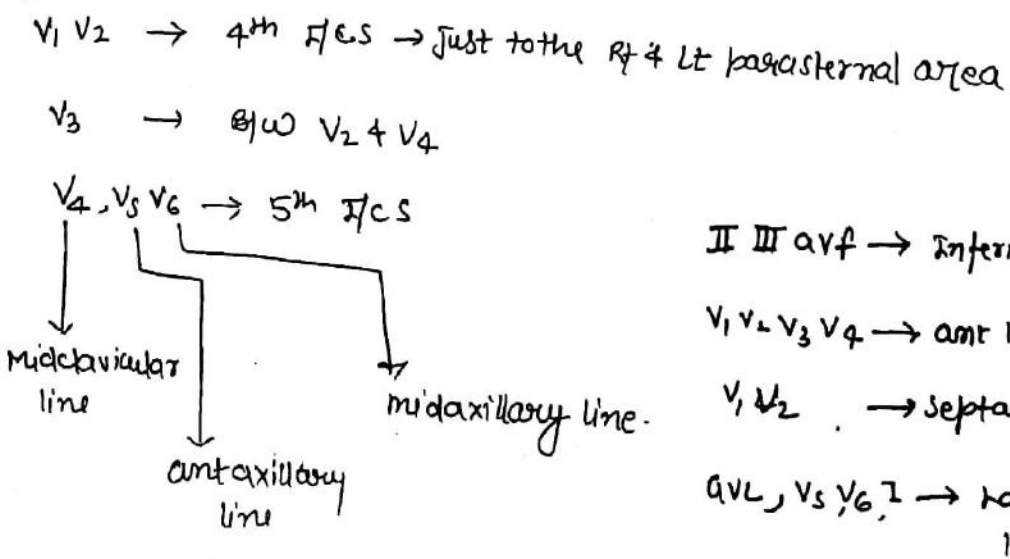 V1 V2 → 4th I/CS → Just to the Rt & Lt parasternal area
V3 → B/W V2 & V4
V4, V5 V6 → 5th I/CS
Midclavicular
line
ant axillary
line
midaxillary line.
II III avf → Infer
V1 V2 V3 V4 → ant
V1 V2 → Septa
aVL, V5 V6, I →